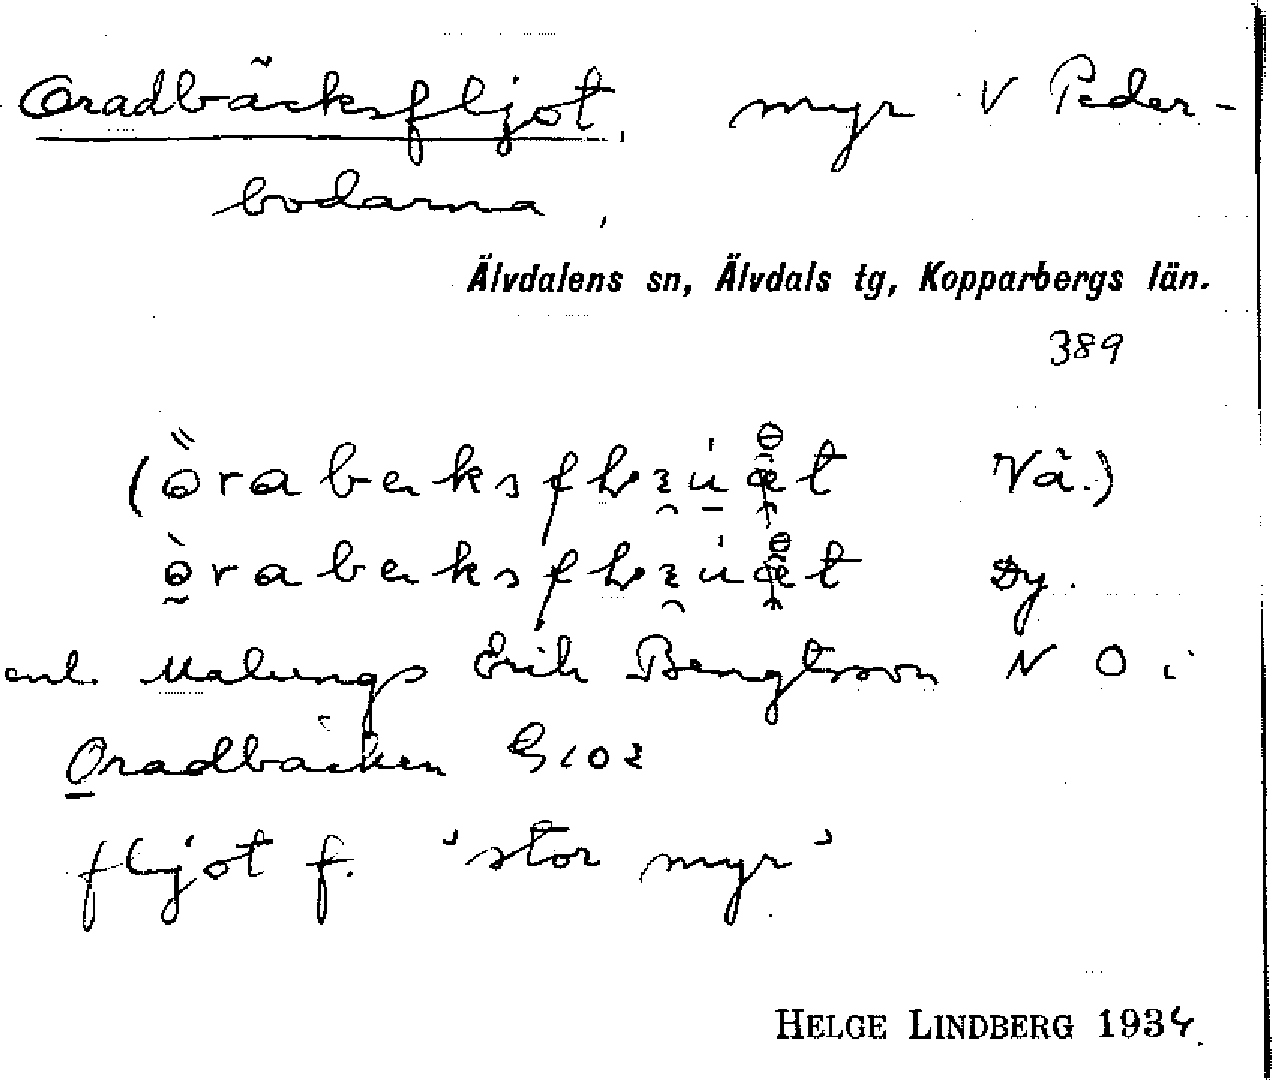 Oradbäcksfljot, myr V Peder-
bodarna,
Älvdalens sn, Älvdals tg, Kopparbergs län.
389
Vä.)
Dy.
enl. Malungs Erik Bengtsson N O i
Oradbäcken G 102
fljot f. 'stor myr'
HELGE LINDBERG 1934.